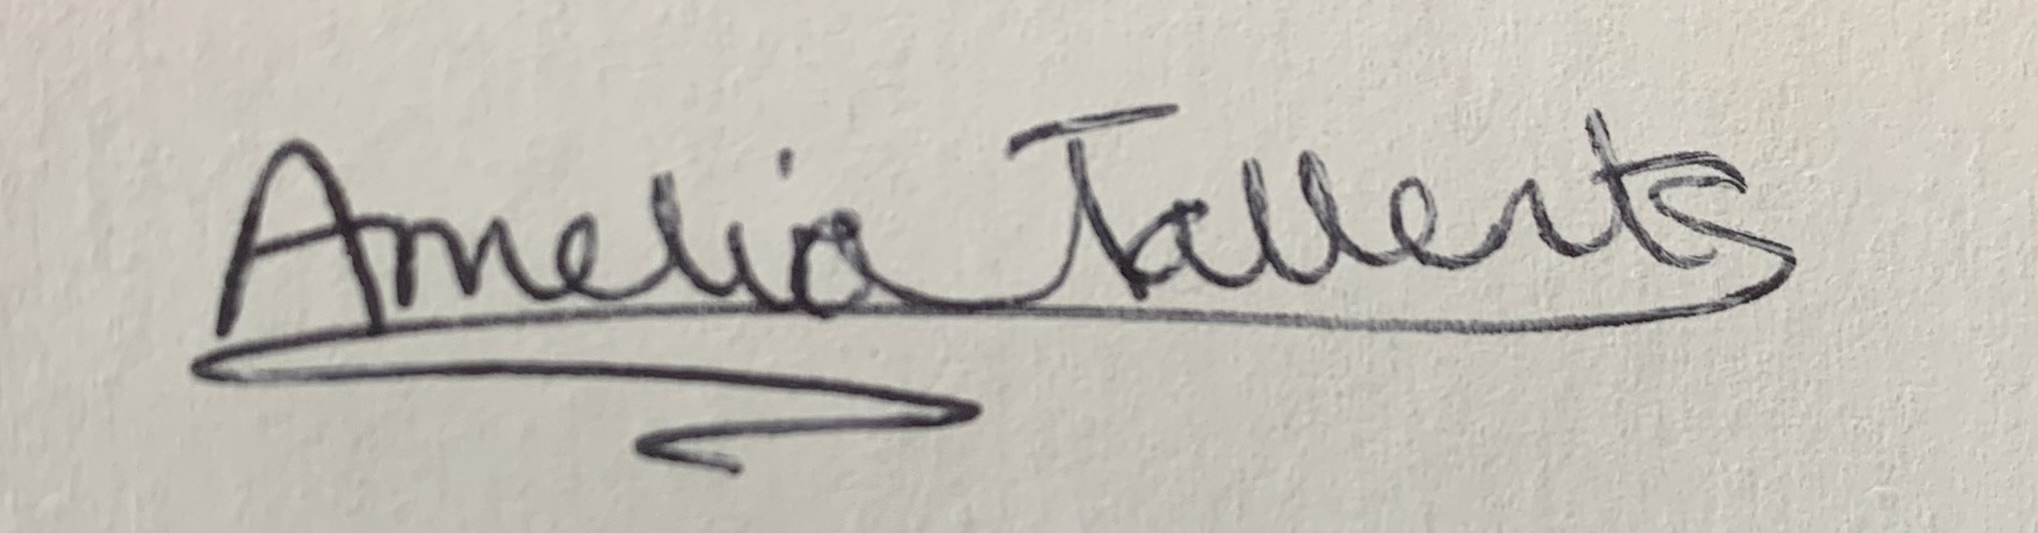 Amelia Tallents